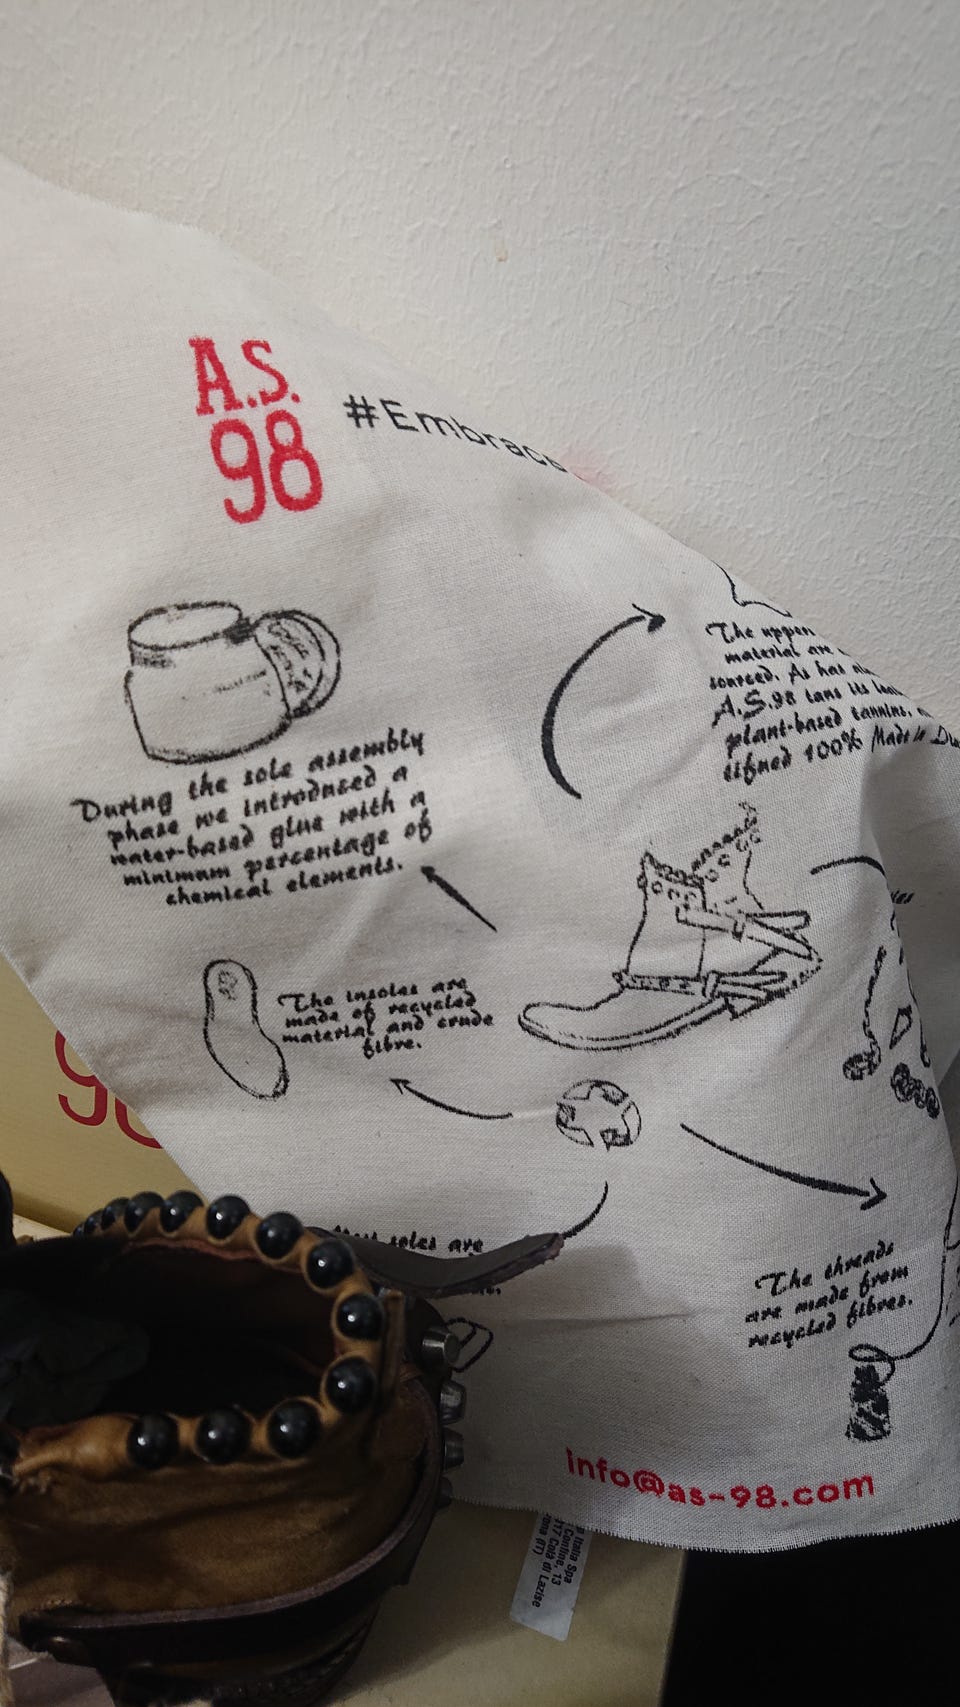 A.S.
98
#Embrace
During the sole assembly
phase we introduced a
water-based glue with a
minimum percentage of
chemical elements.
The upper
material are
sourced. As has
A.S.98 tans its
plant-based tannins,
100% Made in
The insoles are
made of recycled
material and crude
fibre.
soles are
The threads
are made from
recycled fibres.
info@as-98.com
98
Italia Spa
Confine, 13
Colà di Lazise
(IT)